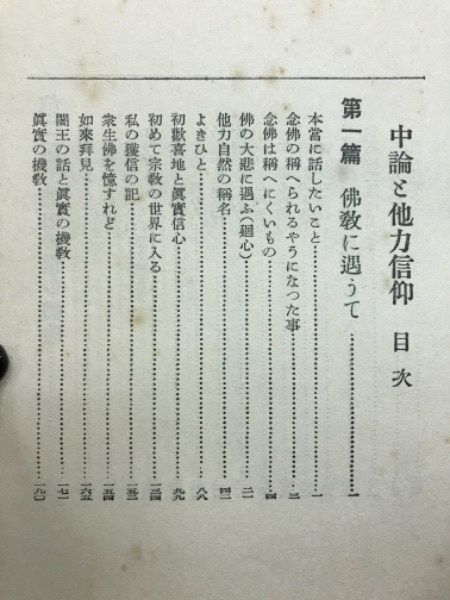 中論と他力信仰 目次
第一篇 佛敎に遇うて……一
本當に話したいこと……一
念佛の稱へられるやうになつた事……三
念佛は稱へにくいもの……四
佛の大悲に遇ふ(廻心)……二一
他力自然の稱名……四二
よきひと……八八
初歡喜地と眞實信心……九九
初めて宗敎の世界に入る……一三四
私の獲信の記……一五二
衆生佛を憶すれど……一五四
如來拜見……一六五
闍王の話と眞實の機敎……一七一
眞實の機敎……一九〇